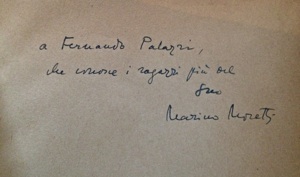 a Fernando Palazzi,
che conosce i ragazzi più del
suo
Marino Moretti